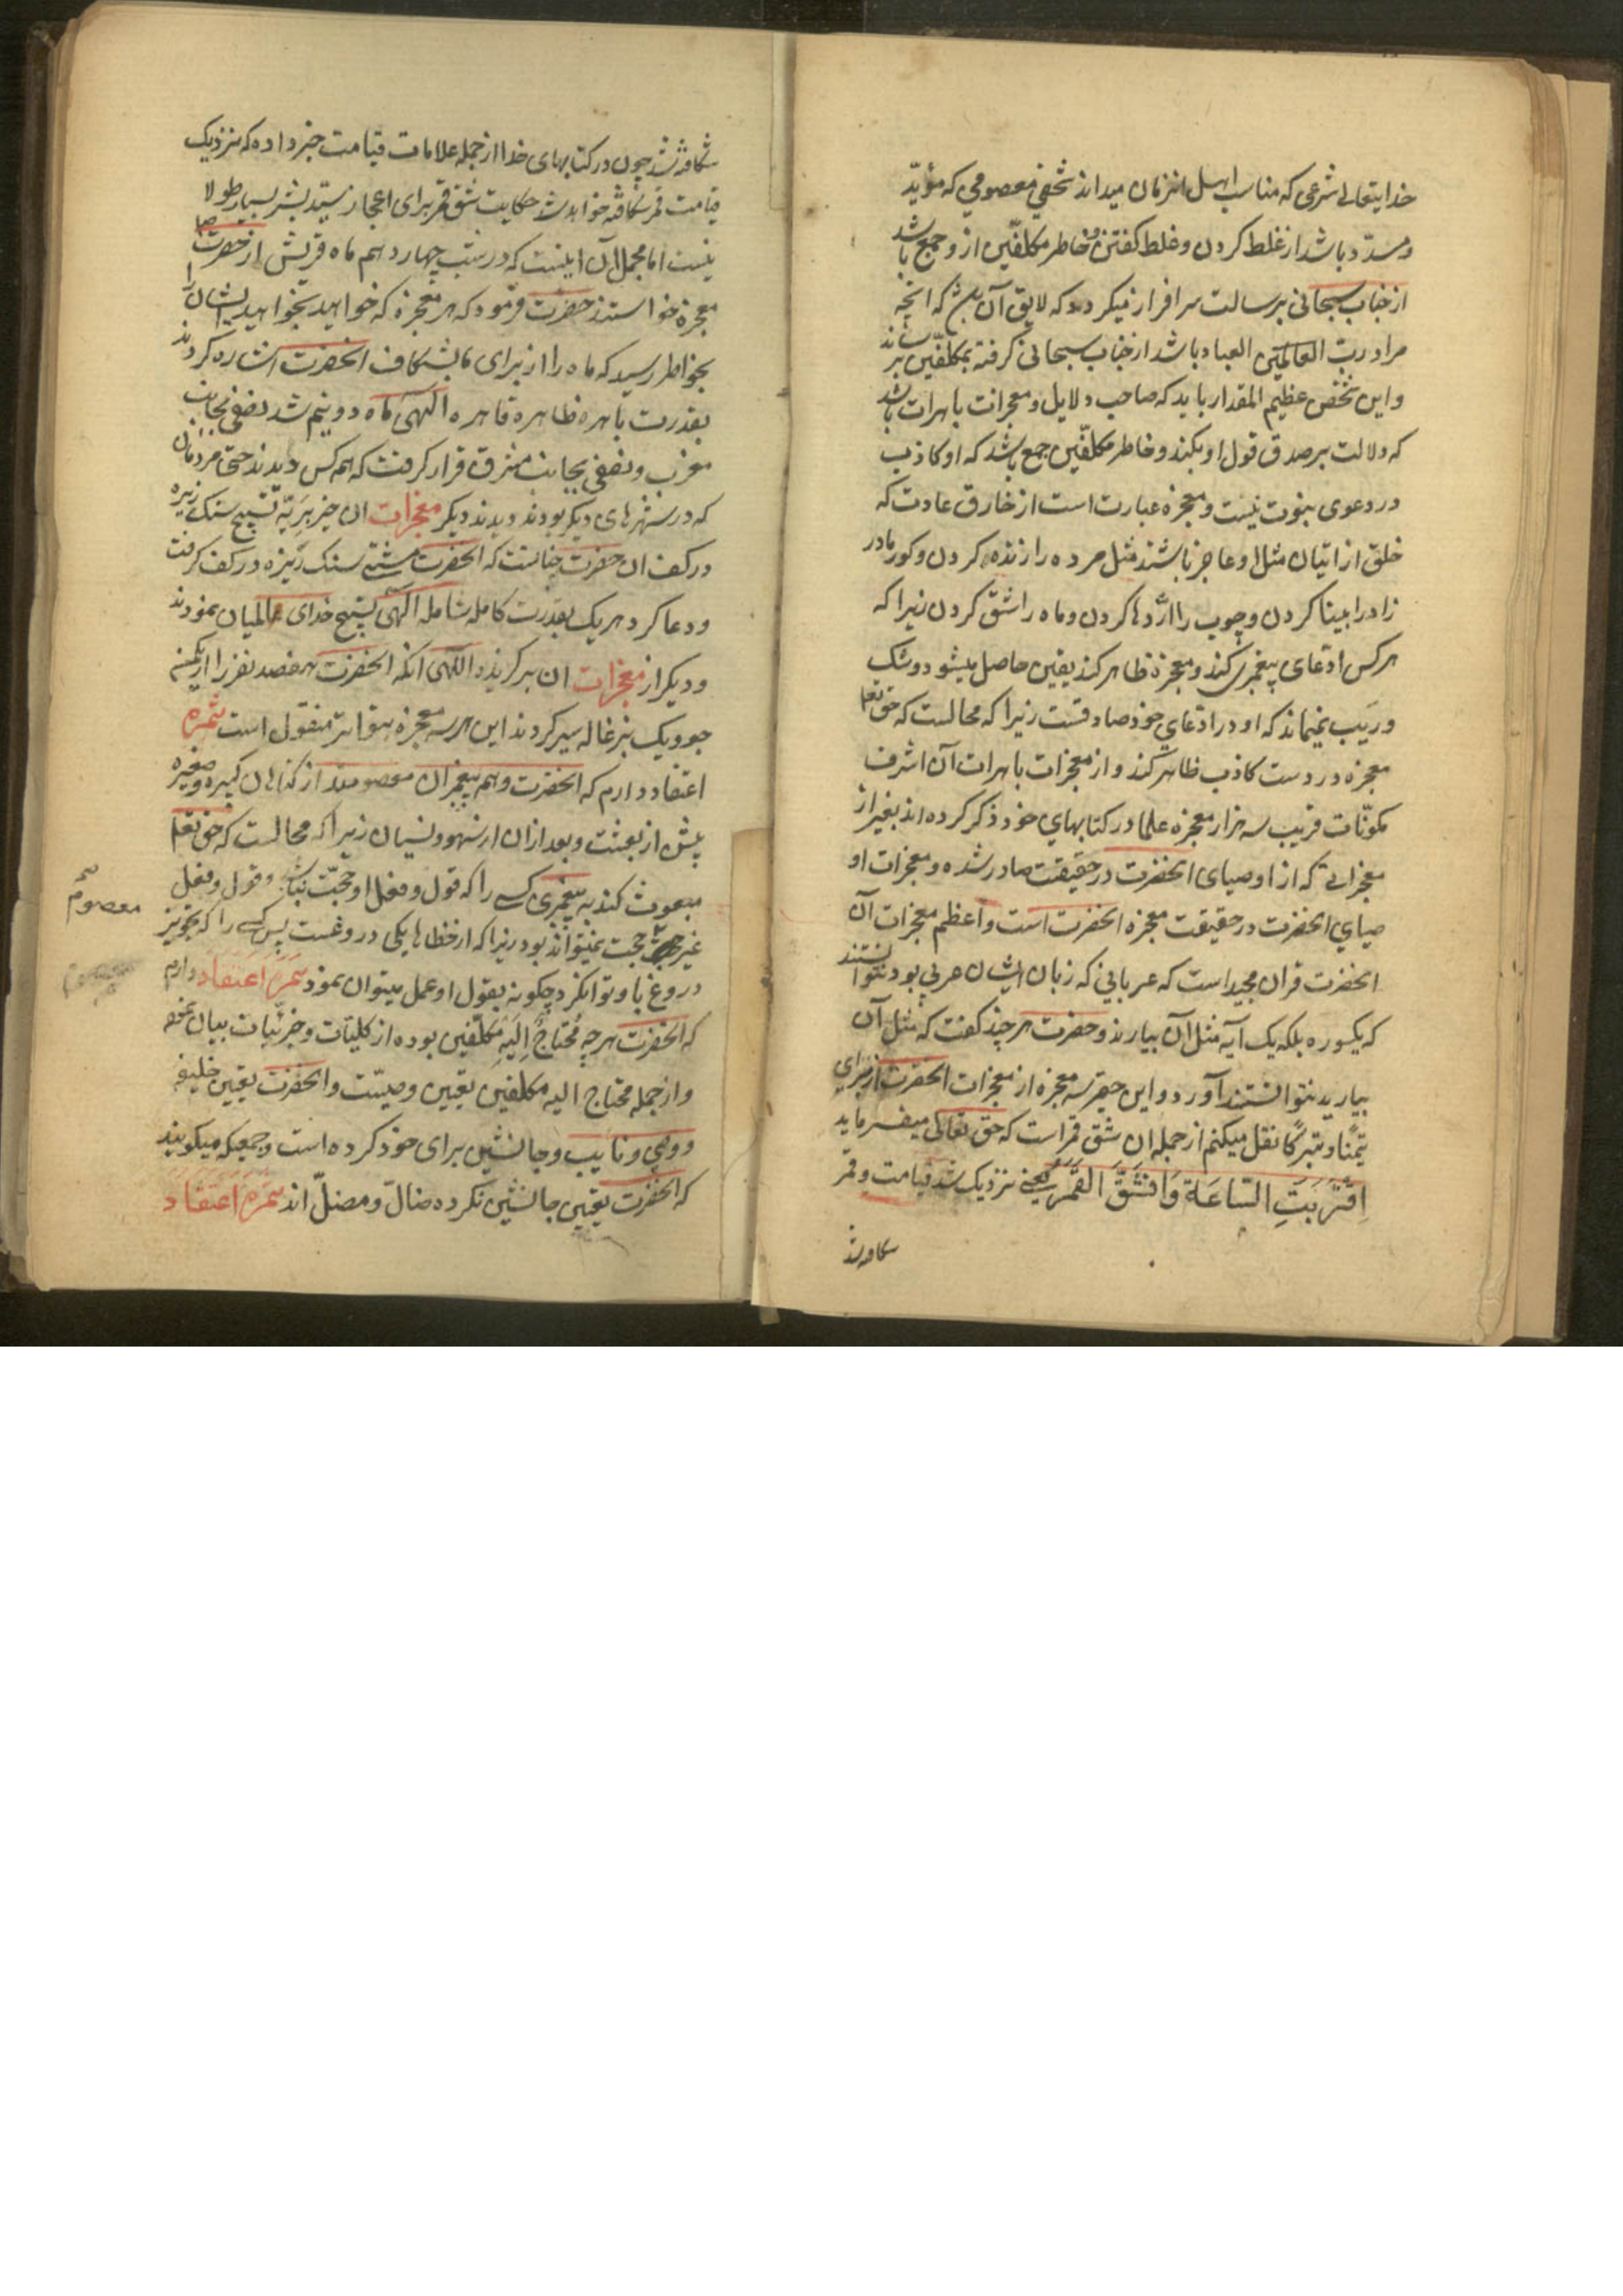 خدایتعالی شرعی که مناسب اهل انزمان میداند شخصی معصومی که مؤیّد
و مسدّد باشد از غلط کردن و غلط کفتن و خاطر مکلفین ازو جمع باشد
از جناب سبحانی برسالت سرافراز میکردد که لایق آن باشد که انچه
مراد ربّ العالمین العباد باشد از جناب سبحانی کرفته بمکلّفین برساند
و این شخص عظیم المقدار باید که صاحب دلایل و معجزات باهرات باشد
که دلالت بر صدق قول او بکند و خاطر مکلّفین جمع باشد که او کاذب
در دعوی نبوت نیست و معجزه عبارت است از خارق عادت که
خلق از اتیان مثل او عاجز باشند مثل مرده را زنده کردن و کور مادر
زاد را بینا کردن و چوب را اژدها کردن و ماه را شق کردن زیرا که
هر کس ادعای پیغمبری کند و معجزه ظاهر کند یقین حاصل میشود و شک
و ریَب نمیماند که او در ادعای خود صادقست زیرا که محالست که حق تعا
معجزه در دست کاذب ظاهر کند و از معجزات باهرات آن اشرف
مکوّنات قریب سه هزار معجزه علما در کتابهای خود ذکر کرده اند بغیر از
معجزاتی که از اوصیای انحضرت در حقیقت صادر شده و معجزات او
صیای انحضرت در حقیقت معجزه انحضرت است و اعظم معجزات آن
انحضرت قران مجید است که عربانی که زبان ایشان عربی بود نتوانستند
که یکسوره بلکه یک آیه مثل آن بیارند و حضرت هر چند کفت که مثل آن
بیارید نتوانستند آورد و این حقیر سه معجزه از معجزات انحضرت از برای
تیمّنا و تبرّکا نقل میکنم از جمله ان شق قمر است که حق تعالی میفرماید
اِقْتَرَبَتِ السّاعَة وَانشَقَّ القَمَرُ یعنی نزدیک شد قیامت و قمر
شکافته شد
شکافته شد چون در کتابهای خدا از جمله علامات قیامت خبر داده که نزدیک
قیامت قمر شکافته خواهد شد حکایت شق قمر برای اعجاز سیّد بشر بسیار طولا
نیست اما مجمل آن اینست که در شب چهاردهم ماه قریش از حضرت
معجزه خواستند حضرت فرمود که هر معجزه که خواهید بخواهید ایشان را
بخواطر رسید که ماه را از برای ما بشکاف انحضرت اشاره کردند
بقدرت باهره ظاهره قاهره الهی ماه دو نیم شد نصفی بجانب
مغرب و نصفی بجانب مشرق قرار کرفت که همه کس دیدند حتی مردمان
که در شهرهای دیکر بودند دیدند دیکر معجزات ان خیر بَرِیّه تسبیح سنک ریزه
در کف ان حضرت چنانست که انحضرت مشتی سنک ریزه در کف کرفت
و دعا کرد هر یک بقدرت کامله شامله الهی تسبیح خدای عالمیان نمودند
و دیکر از معجزات ان برکزیده اللهی انکه انحضرت هفصد نفر را از یکمنه
جو و یک بزغاله سیر کردند این هر سه معجزه بتواتر منقول است ثمره
اعتقاد دارم که انحضرت و همه پیغمبران معصومند از کناهان کبیره و صغیره
پیش از بعثت و بعد از ان از سهو و نسیان زیرا که محالست که حق تعا
مبعوث کند به پیغمبری کسی را که قول و فعل او حجّت نباشد و قول و فعل
غیر معصوم حجت نمیتواند بود زیرا که از خطاها یکی دروغست پس کسی را که تجویز
دروغ باو توانکرد چکونه بقول او عمل میتوان نمود ثمره اعتقاد دارم
که انحضرت هرچه مُحتاجٌ اِلَیهِ مکلّفین بوده از کلیّات و جزئیات بیان نموده
و از جمله محتاج الیه مکلفین تعیین وصیّت و انحضرت تعیین خلیفه
و وصی و نایب و جانشین برای خود کرده است و جمعیکه میکویند
که انحضرت تعیین جانشین نکرده ضالّ و مضلّ اند ثمره اعتقاد
صح
معصوم